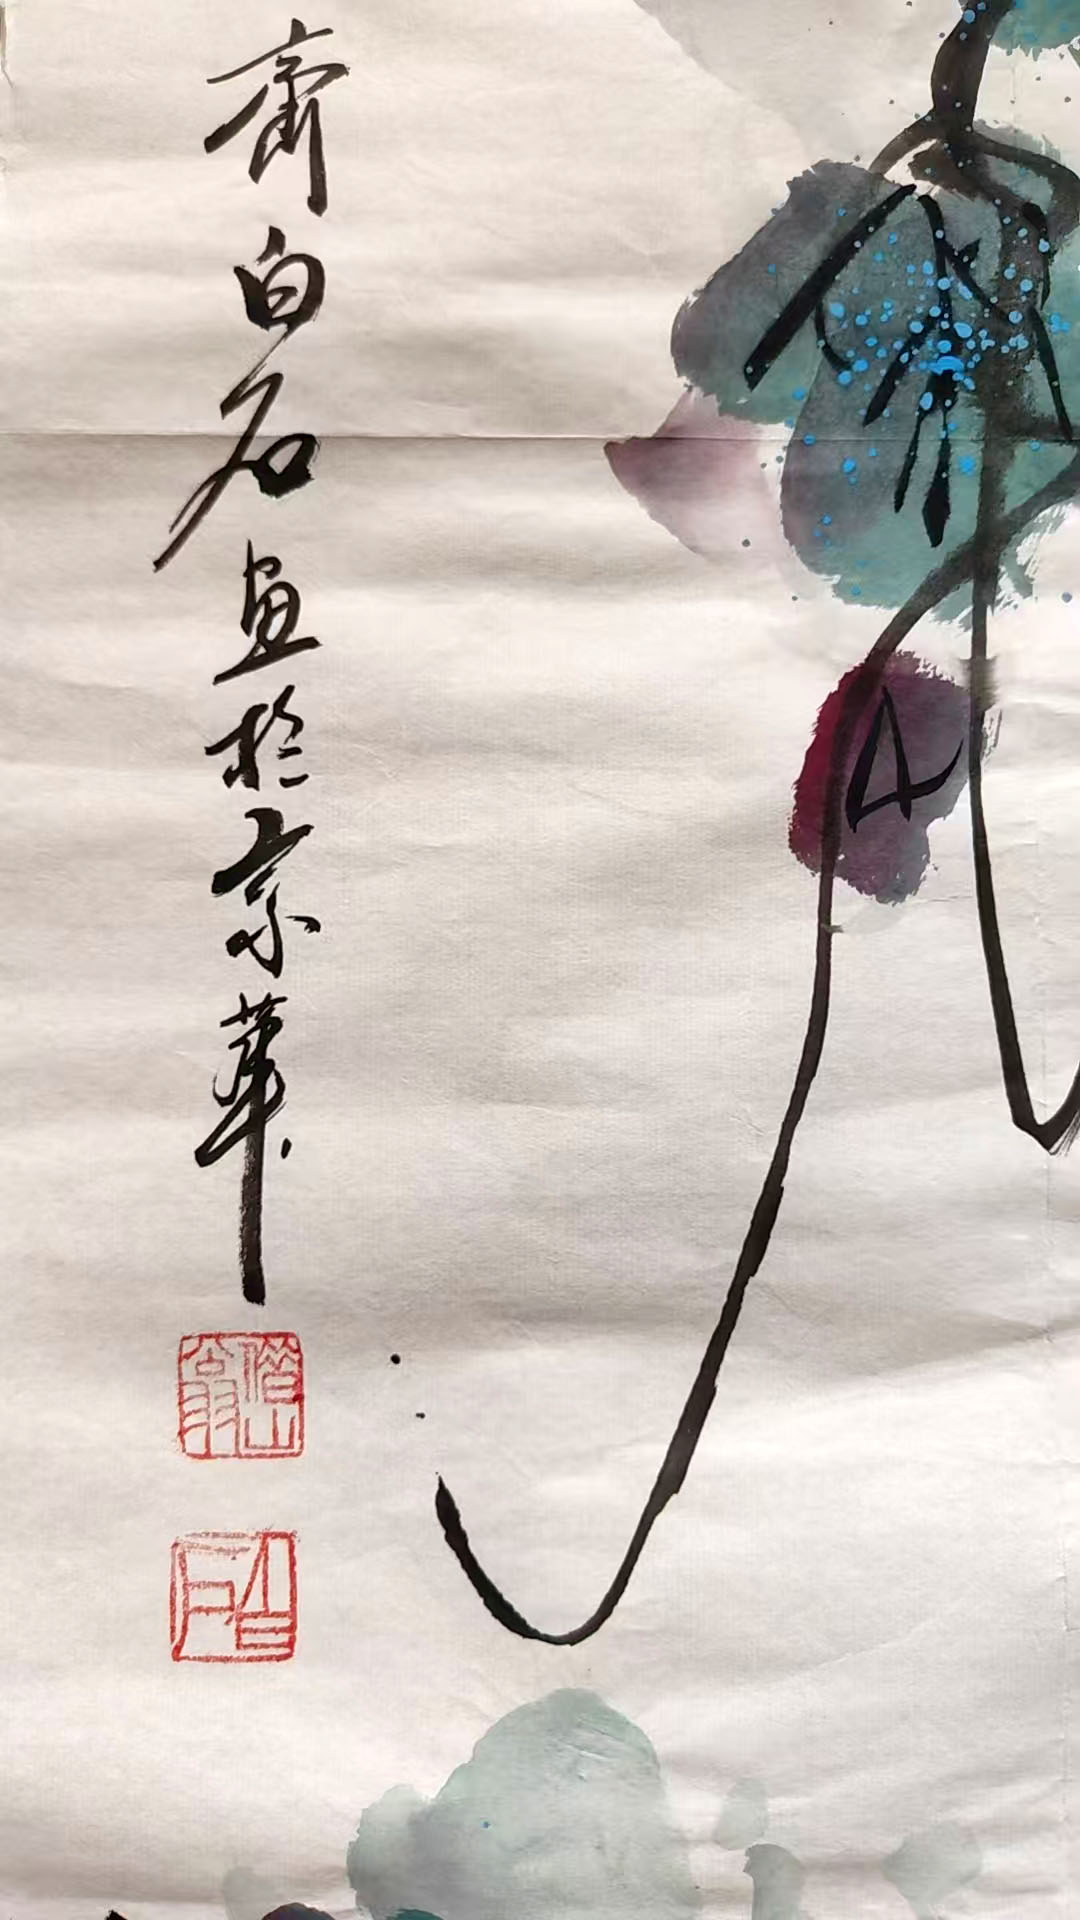 齊白石画於京華
借山翁
白石